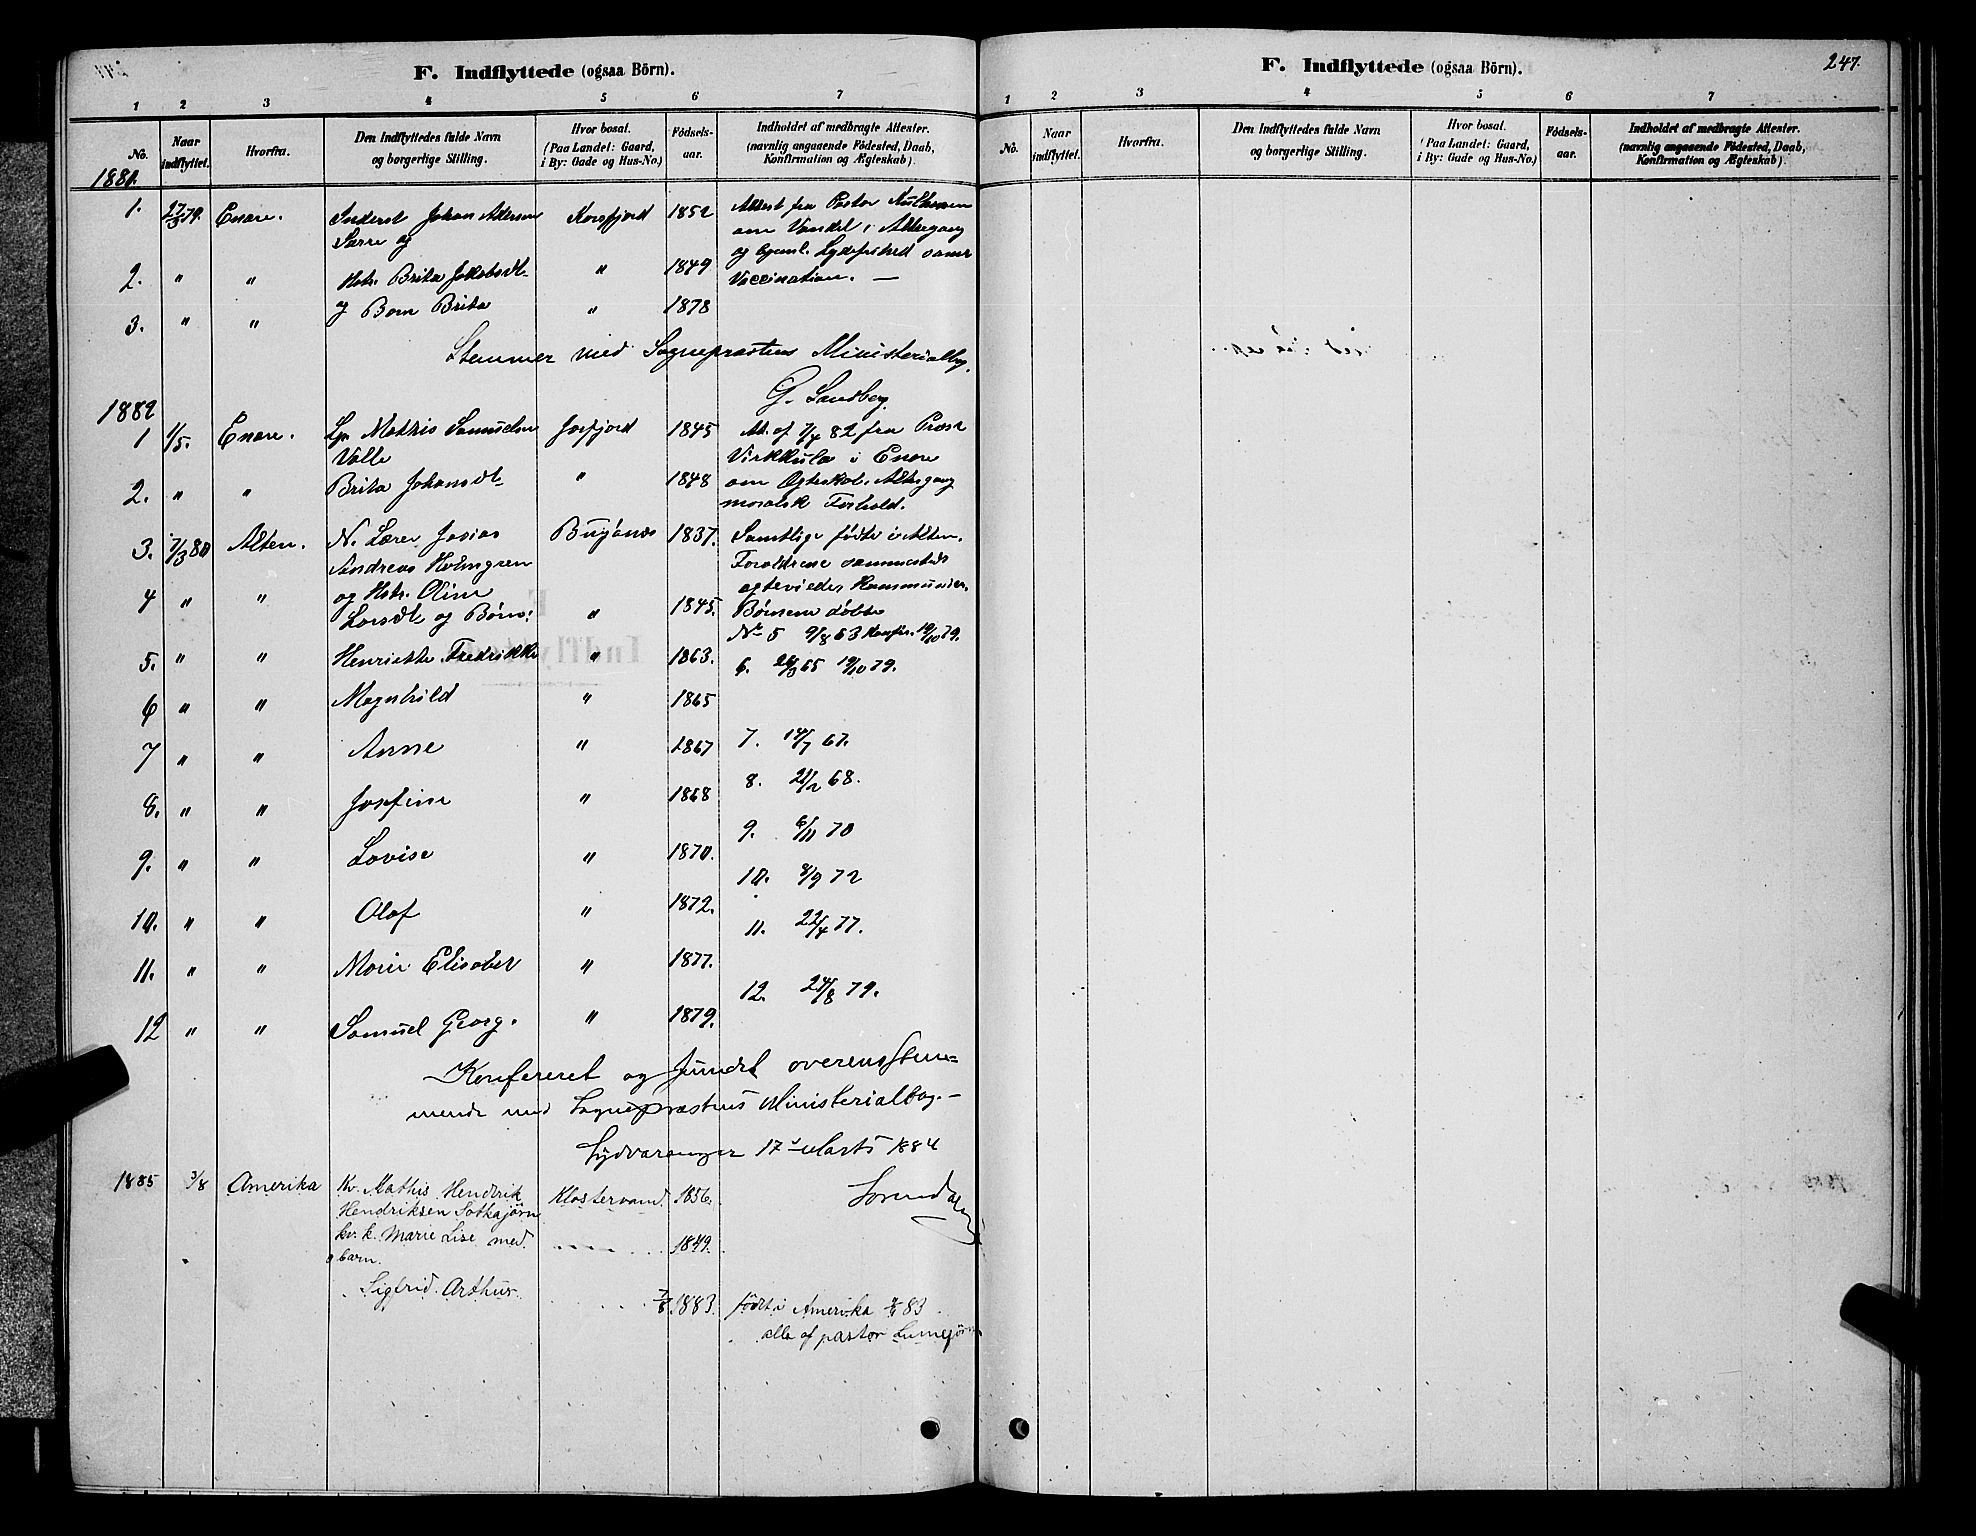 F. Indflyttede (ogsaa Börn).
1 2 3 4 5 6 7
No. Naar indflyttet. Hvorfra. Den Indflyttedes fulde Navn og borgerlige Stilling. Hvor bosat. (Paa Landet: Gaard, i By: Gade og Hus-No.) Födsels-aar. Indholdet af medbragte Attester. (navnlig angaaende Födested, Daab, Konfirmation og Ægteskab).
1881.
1. 27/3 79. Enare. Johan Korsfjord 1852 Attest fra Pastor
Sarre og om Vandel, Altergang
og
2. " " Hstr. Brita Jakobsdtr. " 1849 Vaccination. —
3. " " og Barn Brita " 1878
Stemmer med Sognepræstens Ministerialbog.
G. Sandberg.
1882
1 1/5. Enare. Mathis Samuelsen Jarfjord 1845 Att. af 7/4 82 fra Præst
Valle Virkkula i Enare
2. " " Brita Johansdtr. " 1848 om Ægteskab, Altergang
moralsk Forhold.
3. 7/3 80 Alten. N. Lærer Josias Bugönæs 1837. Samtlige födte i Alten.
Andreas Holmgren Forældrene sammesteds
4 " " og Hstr. Oline ægteviede,
Larsdtr og Börn: " 1845. Börnene döbte
No 5 9/8 63 Konfir. 19/10 79.
5. " " Henriette Fredrikke " 1863. 6. 65 19/10 79.
6 " " Magnhild " 1865
7 " " Anne " 1867 7. 14/7 67.
8. " " Josefine " 1868 8. 21/2 68.
9. " " Lovise " 1870. 9. 6/11 70
10. " " Olaf " 1872. 10. 8/9 72
11. " " Marie Elisabet " 1877. 11. 22/4 77.
12 " " Samuel Georg. " 1879. 12. 24/8 79.
Konfereret og fundet overensstem-
mende med Sognepræstens Ministerialbog. –
Sydvaranger 17de Marts 1884
1885 3/8 Amerika Kv. Mathis Hendrik Klostervand. 1856.
Hendriksen Sotkajärvi
kv. k. Marie Lise med 1849.
barn.
Sigfrid Arthur 7/8 1883. født i Amerika 7/8 83.
af pastor
F. Indflyttede (ogsaa Börn).
247.
1 2 3 4 5 6 7
No. Naar indflyttet. Hvorfra. Den Indflyttedes fulde Navn og borgerlige Stilling. Hvor bosat. (Paa Landet: Gaard, i By: Gade og Hus-No.) Födsels-aar. Indholdet af medbragte Attester. (navnlig angaaende Födested, Daab, Konfirmation og Ægteskab).